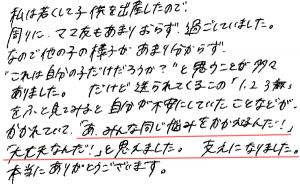 私は若くして子供を出産したので、
周りに ママ友もあまりおらず、過ごしていました。
なので他の子の様子があまり分からず、
"これは自分の子だけだろうか?"と思うことが多々
ありました。 だけど送られてくるこの「1.2.3歳」
をふと見てみると自分が不安にしていたことなどが、
かかれていて、「あ、みんな同じ悩みをかかえるんだ!」
「大丈夫なんだ!」と思えました。 支えになりました。
本当にありがとうございます。